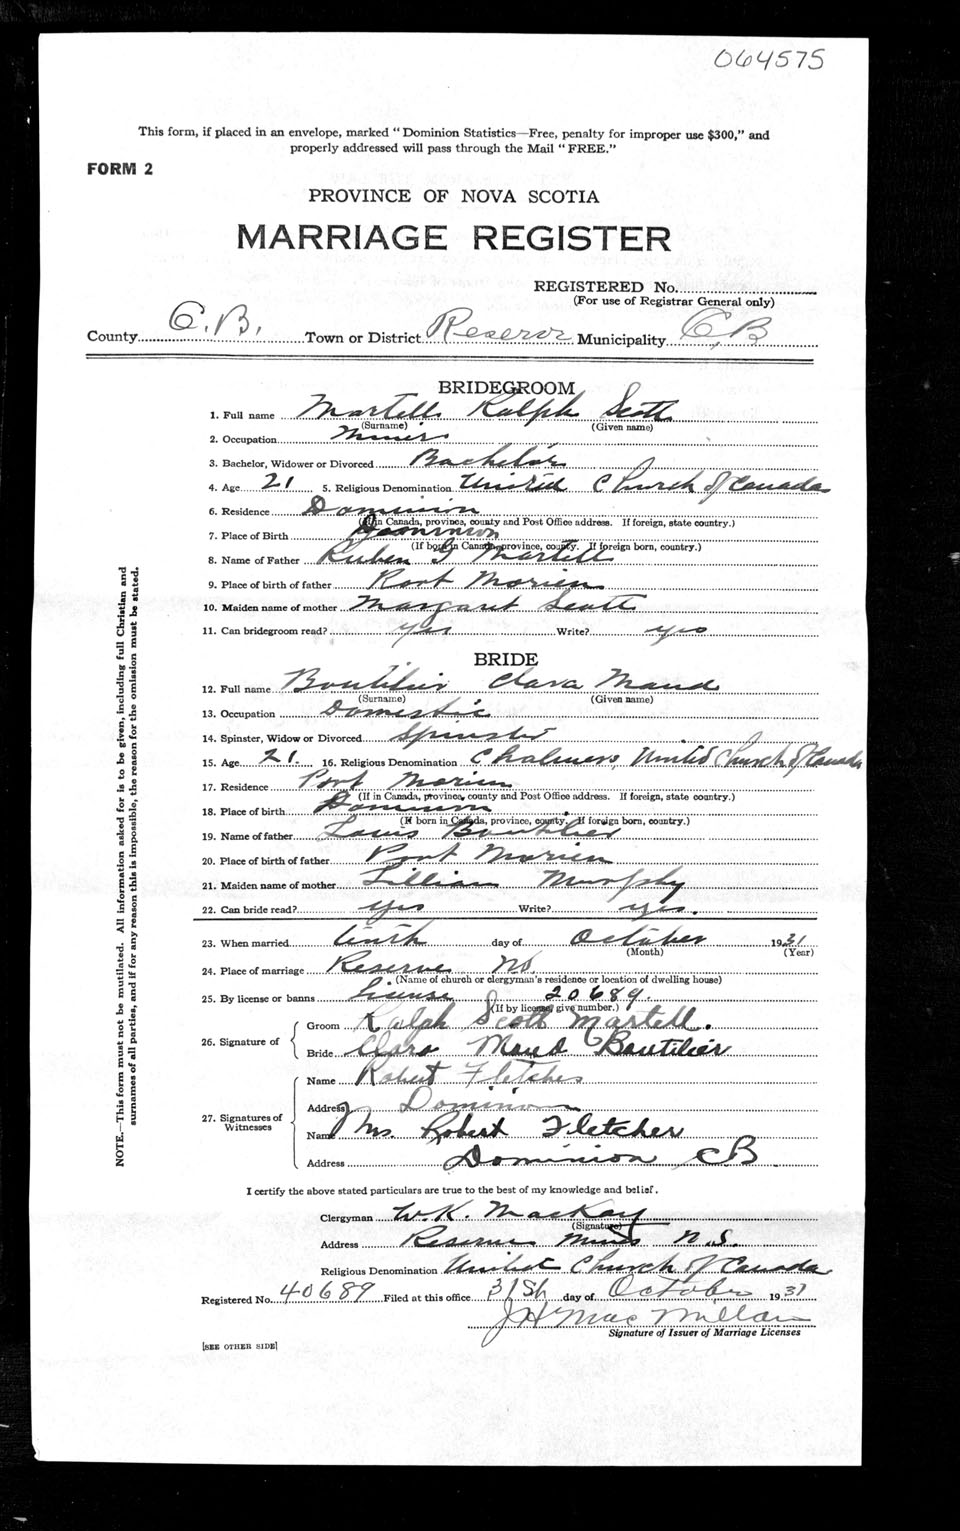 064575
This form, if placed in an envelope, marked "Dominion Statistics—Free, penalty for improper use $300," and
properly addressed will pass through the Mail "FREE."
FORM 2
PROVINCE OF NOVA SCOTIA
MARRIAGE REGISTER
REGISTERED No.
(For use of Registrar General only)
County C.B. Town or District Reserve Municipality C.B
BRIDEGROOM
1. Full name Martell Ralph Scott
(Surname) (Given name)
2. Occupation Miner
3. Bachelor, Widower or Divorced Bachelor
4. Age 21 5. Religious Denomination United Church of Canada
6. Residence Dominion
(If in Canada, province, county and Post Office address. If foreign, state country.)
7. Place of Birth Dominion
(If born in Canada, province, county. If foreign born, country.)
8. Name of Father Ruben G Martell
9. Place of birth of father Port Morien
10. Maiden name of mother Margaret Scott
11. Can bridegroom read? yes Write? yes
BRIDE
12. Full name Boutilier Clara Maud
(Surname) (Given name)
13. Occupation Domestic
14. Spinster, Widow or Divorced Spinster
15. Age 21. 16. Religious Denomination Chalmers, United Church of Canada
17. Residence Port Morien
(If in Canada, province, county and Post Office address. If foreign, state country.)
18. Place of birth Dominion
(If born in Canada, province, county. If foreign born, country.)
19. Name of father Louis Boutilier
20. Place of birth of father Port Morien
21. Maiden name of mother Lillian Murphy
22. Can bride read? yes Write? yes.
23. When married tenth day of October 1931
(Month) (Year)
24. Place of marriage Reserve
(Name of church or clergyman's residence or location of dwelling house)
25. By license or banns License 20689.
(If by license, give number.)
26. Signature of
Groom Ralph Scott Martell.
Bride Clara Maud Boutilier
27. Signatures of Witnesses
Name Robert Fletcher
Address Dominion
Name Mrs. Robert Fletcher
Address Dominion CB
I certify the above stated particulars are true to the best of my knowledge and belief.
Clergyman W.K. MacKay
(Signature)
Address Reserve Mines N.S.
Religious Denomination United Church of Canada
Registered No. 40689 Filed at this office 31st day of October 1931
J H MacMillan
Signature of Issuer of Marriage Licenses
[SEE OTHER SIDE]
NOTE.—This form must not be mutilated. All information asked for is to be given, including full Christian and
surnames of all parties, and if for any reason this is impossible, the reason for the omission must be stated.